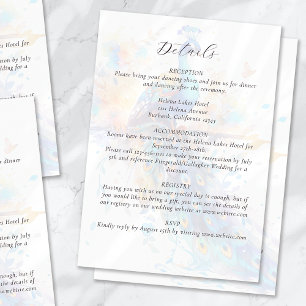 Details
RECEPTION
Please bring your dancing shoes and join us for dinner
and dancing after the ceremony.
Helena Lakes Hotel
1221 Helena Avenue
Burbank, California 12345
ACCOMMODATION
Rooms have been reserved at the Helena Lakes Hotel for
September 27th-28th.
Please call to make your reservation by July
5th and reference Fitzgerald/Gallagher Wedding for a
REGISTRY
Having you with us on our special day is enough, but if
you would like to bring a gift, you can find details of
our registry on our wedding website at www.website.com
RSVP
Kindly reply by August 15th by visiting www.website.com
Hotel for
by July
Wedding for a
dinner
Hotel for
by July
Wedding for a
enough, but if
details of
www.website.com
website.com